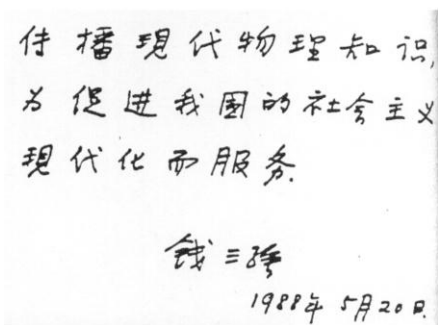 传播現代物理知识,
为促进我国的社会主义
現代化而服务.
钱三强
1988年 5月20日.